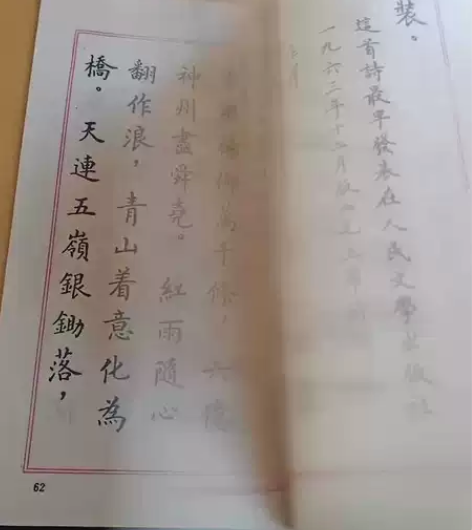 裝。
這首詩最早發表在人民文學出版社
一九六三年十二月版
楊柳萬千條，六億
神州盡舜堯。紅雨隨心
翻作浪，青山着意化為
橋。天連五嶺銀鋤落，
62